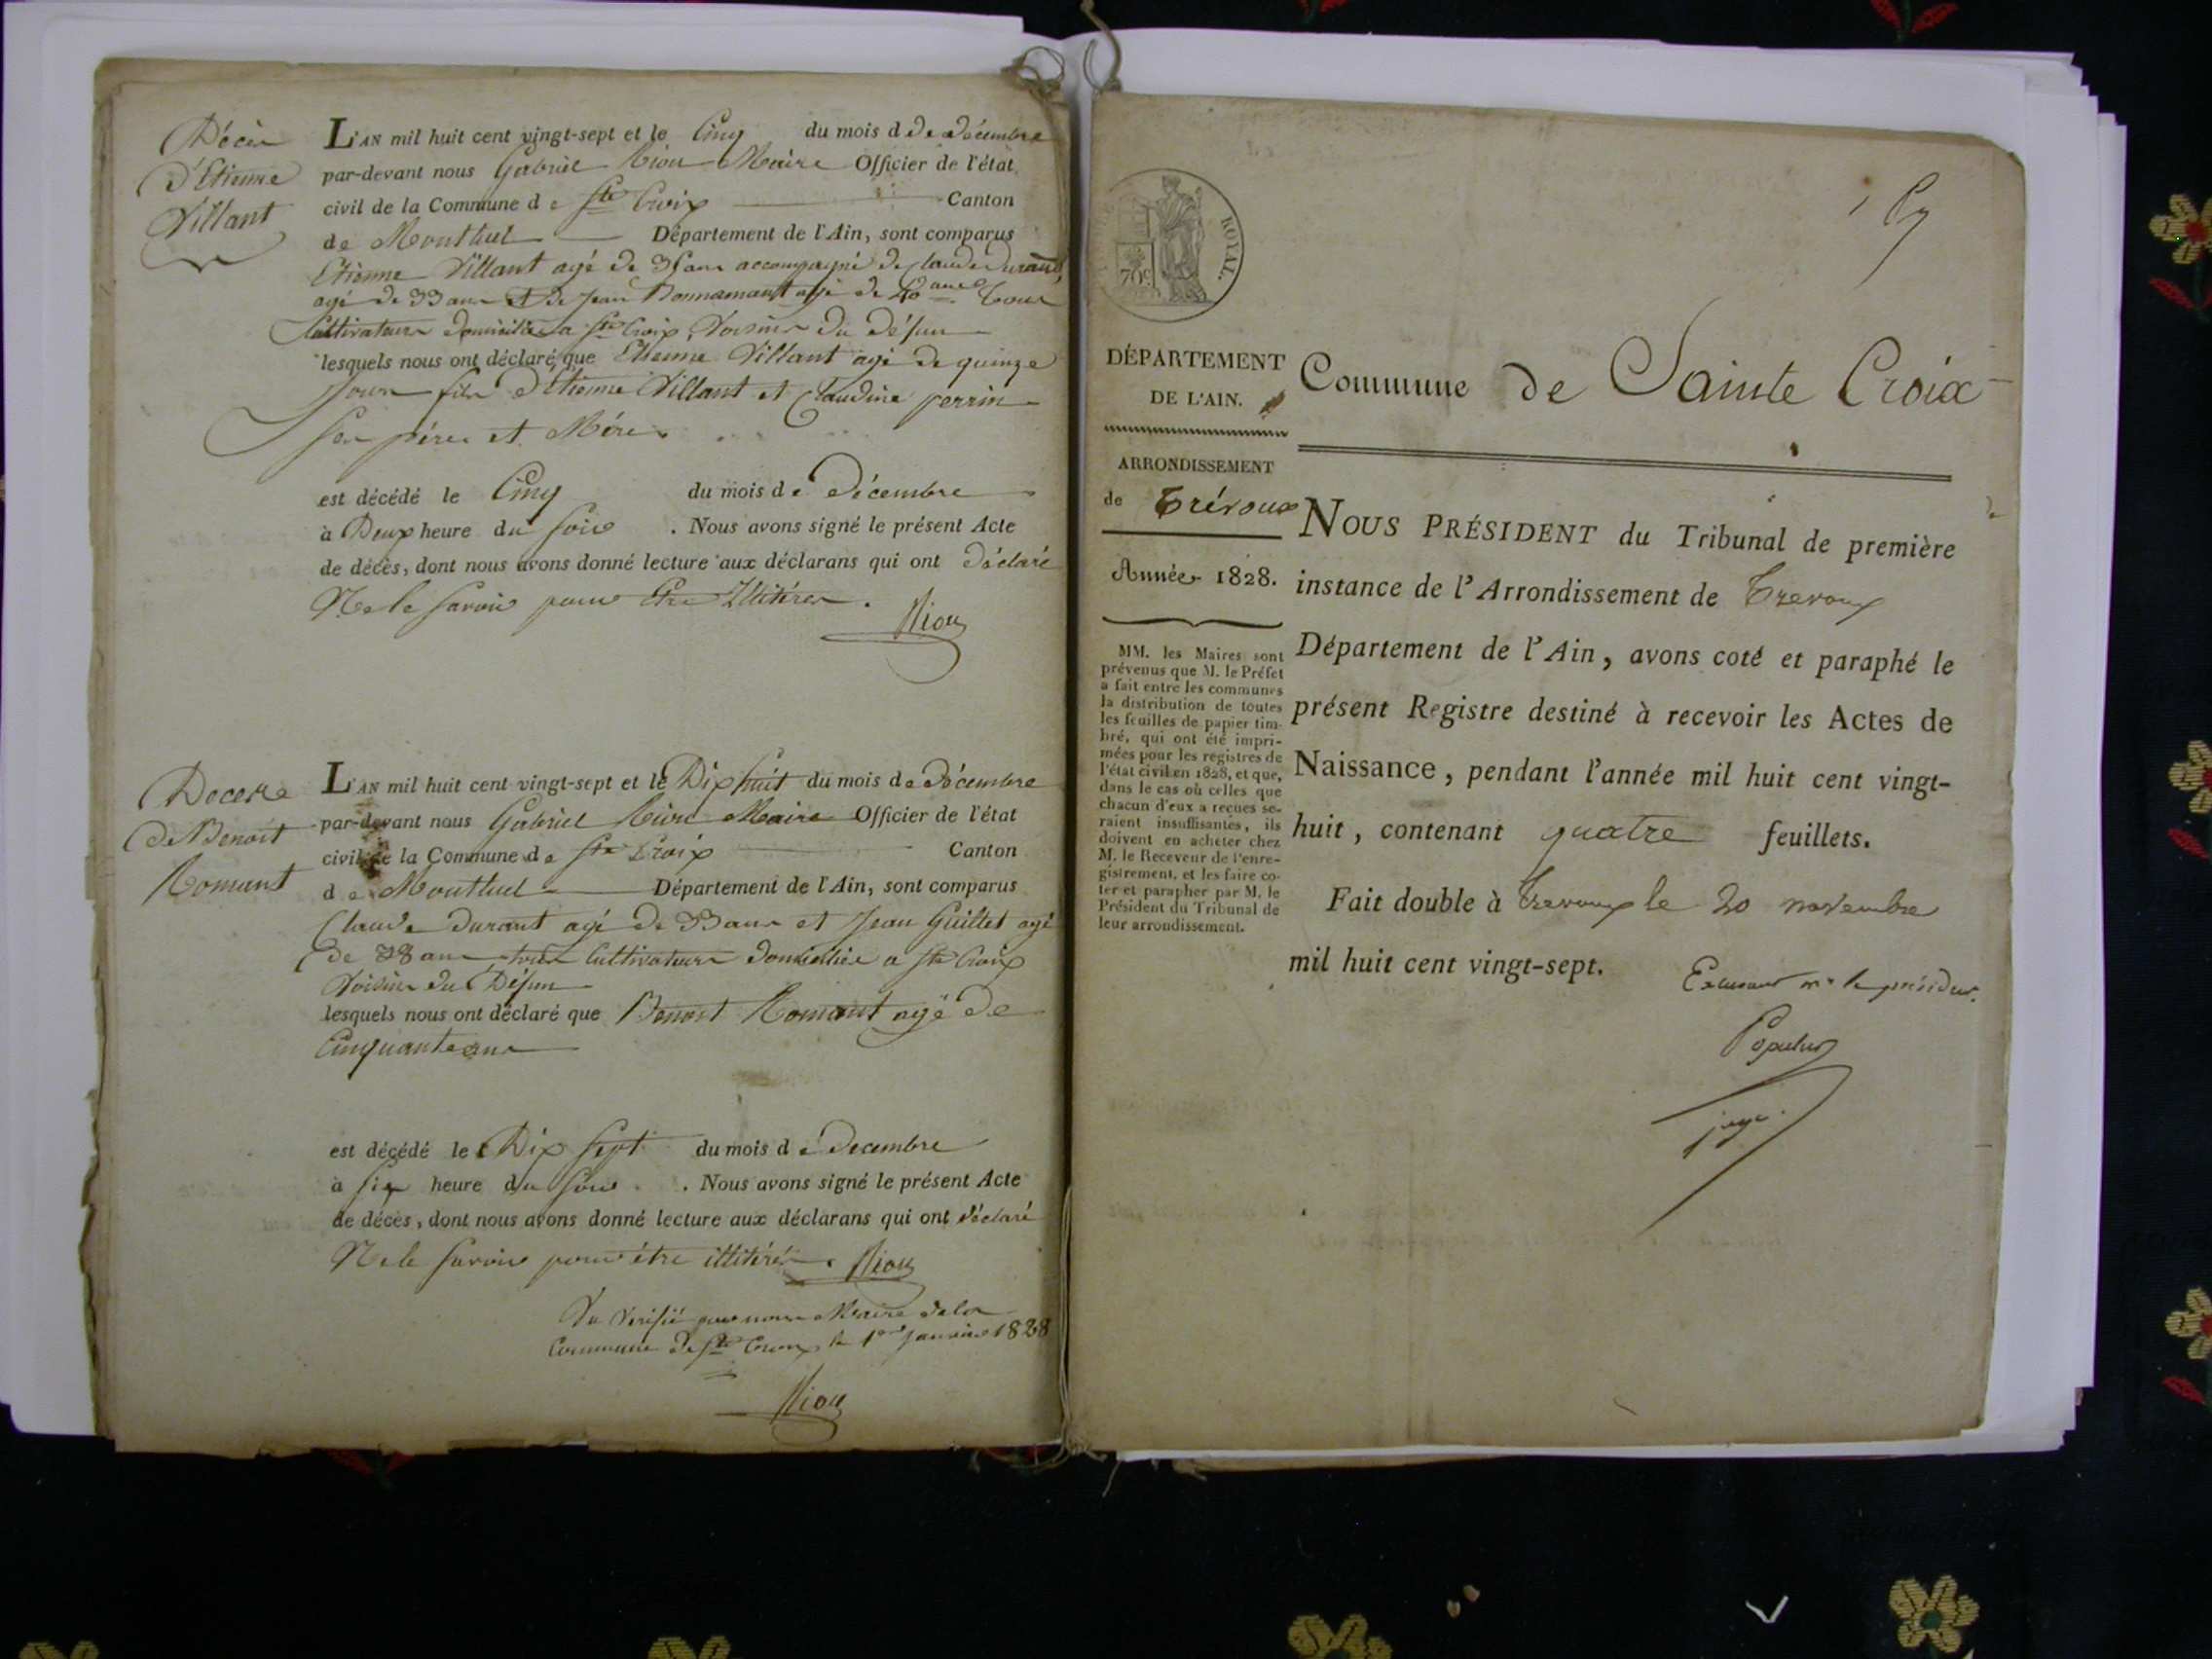 Décès
d'Etienne
Villant
L'AN mil huit cent vingt-sept et le Cinq du mois d de décembre
par-devant nous Gabriel Niou Maire Officier de l'état
civil de la Commune de Ste Croix Canton
de Montluel Département de l'Ain, sont comparus
Etienne Villant agé de ans accompagné de Claude Durand
agé de 33 ans et de Jean Bonnamant agé de 40 ans tous
Cultivateurs domiciliés a Ste Croix, Voisins du défun
lesquels nous ont déclaré que Etienne Villant agé de quinze
Jours fils d'Etienne Villant et Claudine perrin
Ses père et Mère
est décédé le Cinq du mois de décembre
à Deux heure du Soir . Nous avons signé le présent Acte
de décès, dont nous avons donné lecture aux déclarans qui ont déclaré
Ne le Savoir pour Etre Illitérés.
Niou
Decere
de Benoit
Romant
L'AN mil huit cent vingt-sept et le Dix huit du mois de décembre
par-devant nous Gabriel Niou Maire Officier de l'état
civil de la Commune de Ste Croix Canton
de Montluel Département de l'Ain, sont comparus
Claude durant agé de 33 ans et Jean Guillet agé
de 38 ans tous Cultivateurs domiciliés a Ste Croix
Voisins du Défun
lesquels nous ont déclaré que Benoit Romant agé de
Cinquante ans
est décédé le Dix Sept du mois de decembre
à Six heure du Soir . Nous avons signé le présent Acte
de décès, dont nous avons donné lecture aux déclarans qui ont déclaré
Ne le Savoir pour être illitérés. Niou
Vu Verifié par nous Maire de la
Commune de Ste Croix le 1er Janvier 1828
Niou
ROYAL.
70c
DÉPARTEMENT
DE L'AIN.
ARRONDISSEMENT
de Trévoux
Année 1828.
MM. les Maires sont
prévenus que M. le Préfet
a fait entre les communes
la distribution de toutes
les feuilles de papier tim-
bré, qui ont été impri-
mées pour les registres de
l'état civil en 1828, et que,
dans le cas où celles que
chacun d'eux a reçues se-
raient insuffisantes, ils
doivent en acheter chez
M. le Receveur de l'enre-
gistrement, et les faire co-
ter et parapher par M. le
Président du Tribunal de
leur arrondissement.
Commune de Sainte Croix
NOUS PRÉSIDENT du Tribunal de première
instance de l'Arrondissement de Trevoux
Département de l'Ain, avons coté et paraphé le
présent Registre destiné à recevoir les Actes de
Naissance, pendant l'année mil huit cent vingt-
huit, contenant quatre feuillets.
Fait double à Trevoux le 20 novembre
mil huit cent vingt-sept.
mr le président
Populus
juge